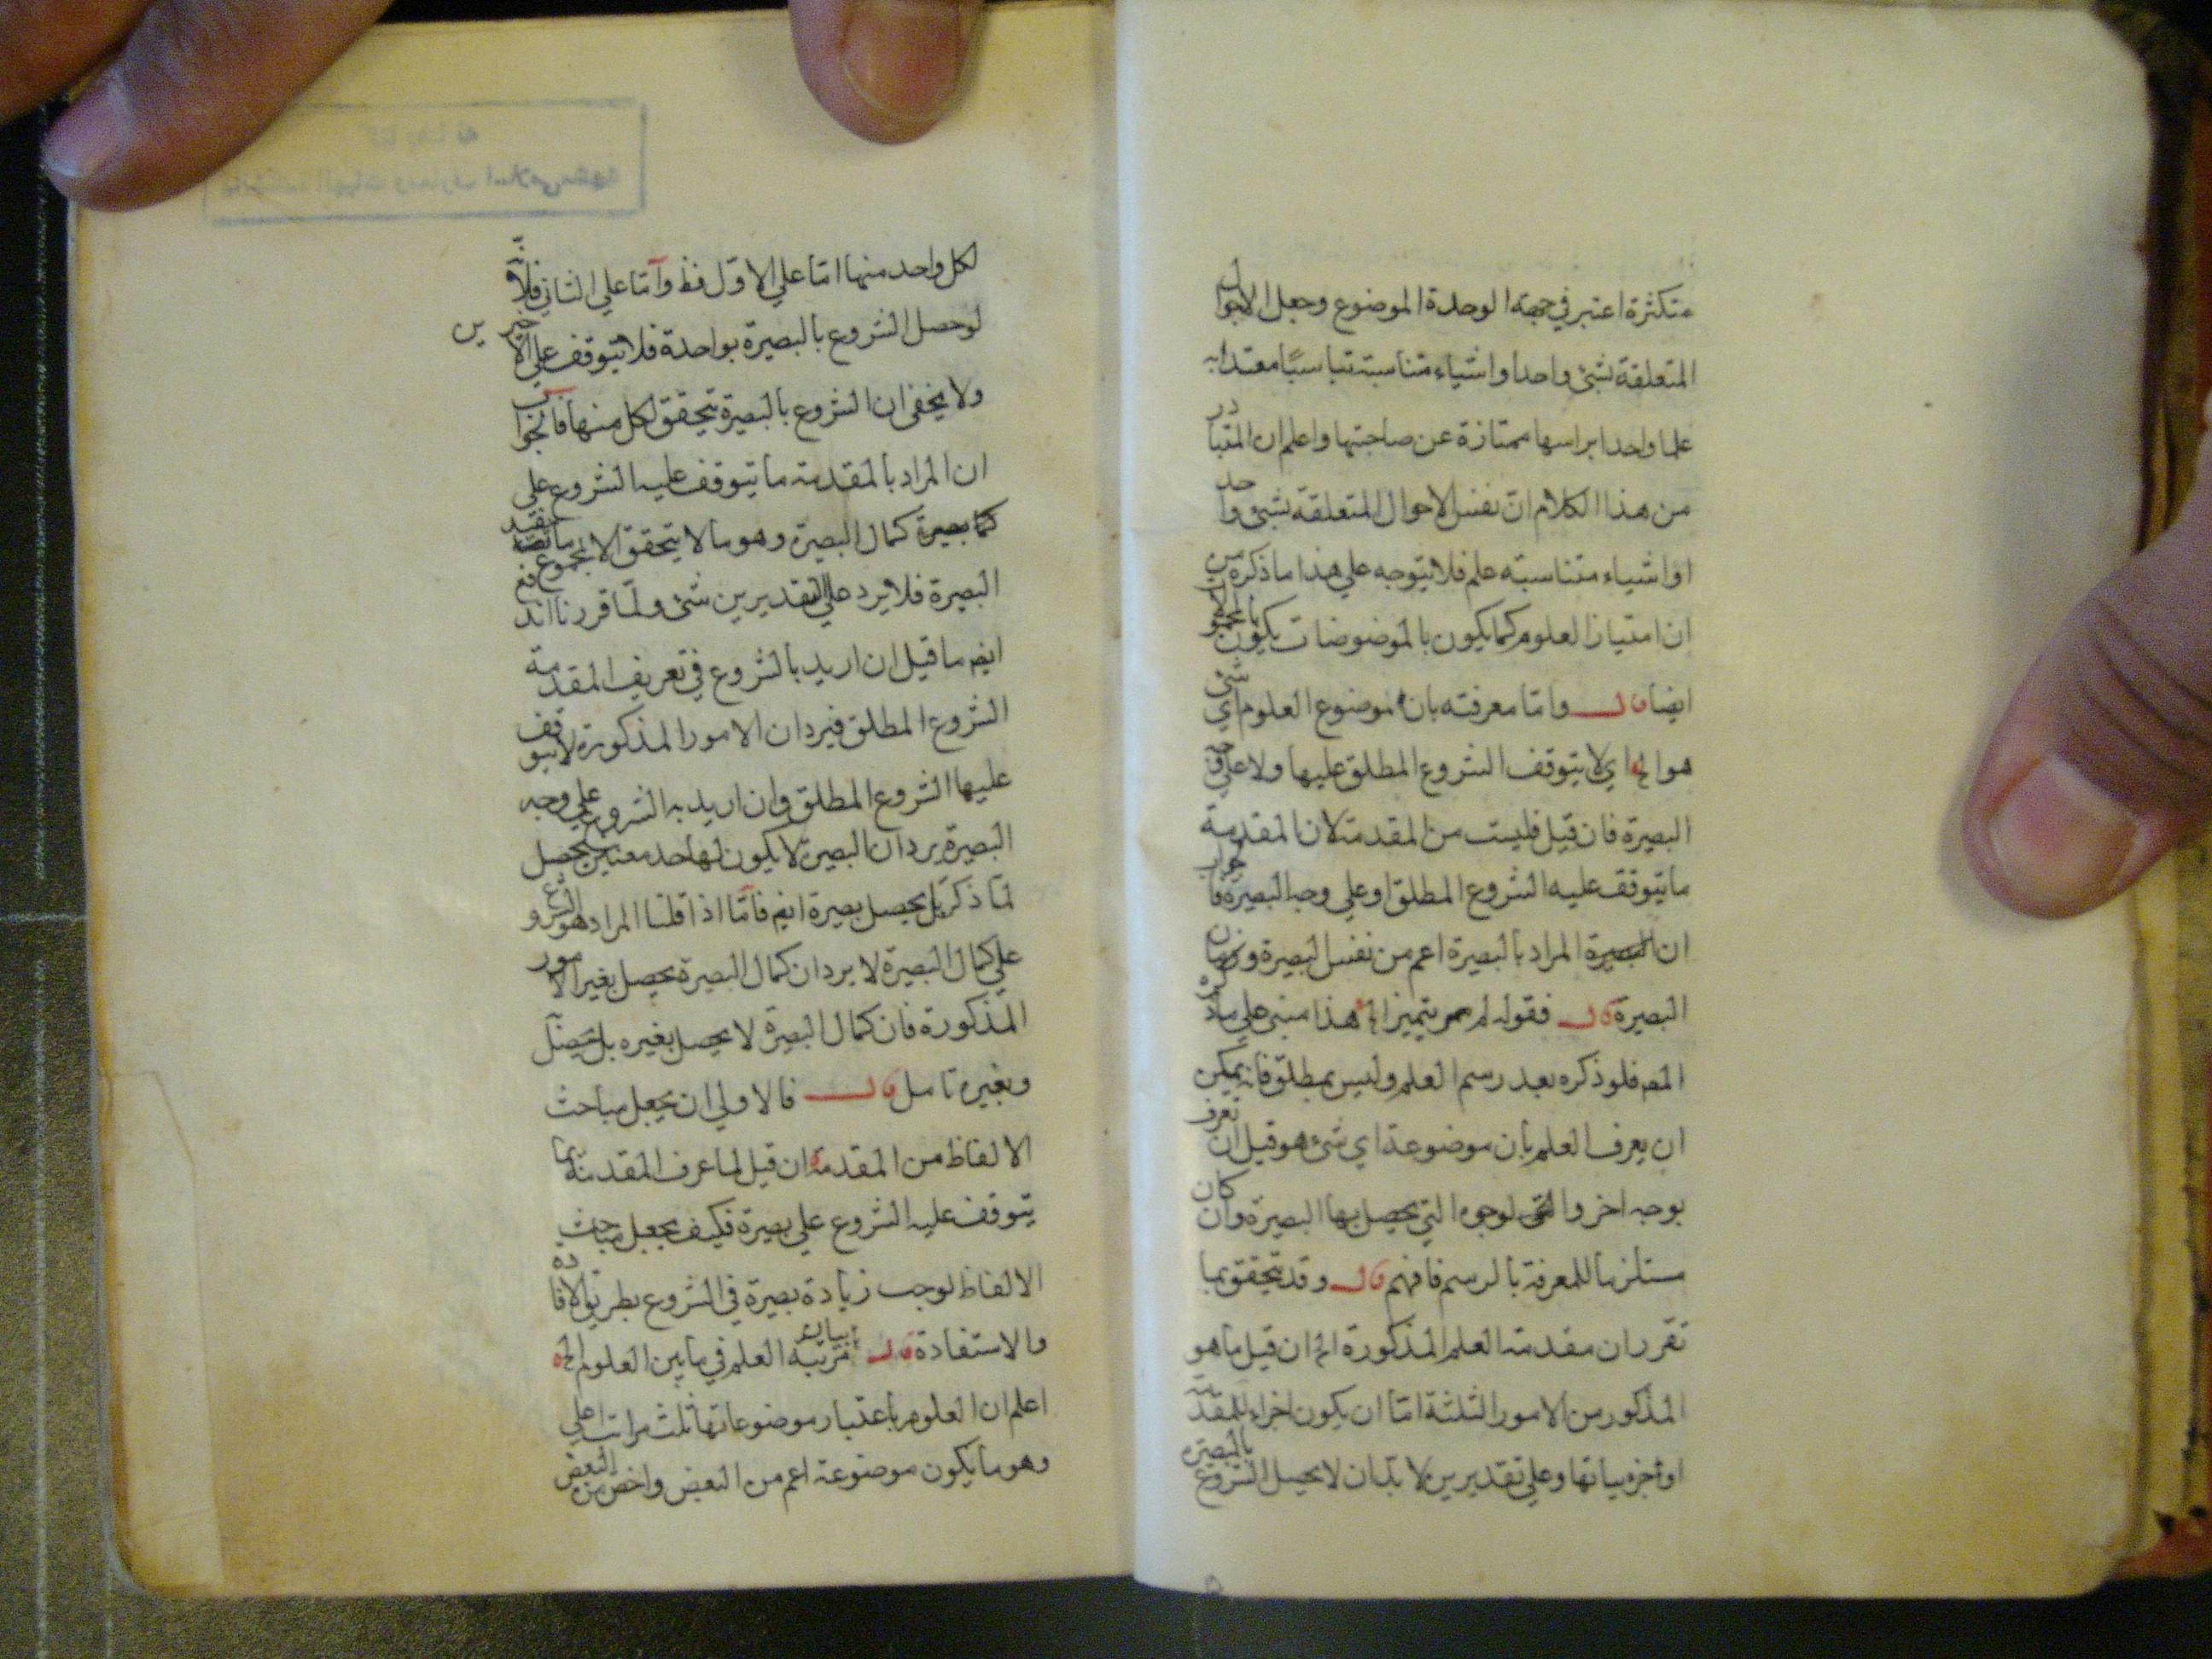 متكثرة اعتبر في جهة الوحدة الموضوع وجعل الاحوال
المتعلقة بشئ واحد او اشياء متناسبة تناسبًا معتدا به
علما واحدا براسها ممتازة عن صاحبتها واعلم ان المتبادر
من هذا الكلام انّ نفس الاحوال المتعلقة بشئ واحد
او اشياء متناسبته علم فلا يتوجه علي هذا ما ذكره من
ان امتياز العلوم كما يكون بالموضوعات يكون بالمحمولات
ايضا قال واما معرفته بان موضوع العلوم اي شئ
هو الخ اي لا يتوقف الشروع المطلق عليها ولا علي وجه
البصيرة فان قيل فليست من المقدمة لان المقدمة
ما يتوقف عليه الشروع المطلق او علي وجه البصيرة فالجواب
ان المراد بالبصيرة اعم من نفس البصيرة و
البصيرة قال فقوله لم يتميز الخ هذا مبني علي ما ذكره
المص فلو ذكره بعد رسم العلم وليس بمطلق فانه يمكن
ان يعرف العلم بان موضوعة اي شئ هو قيل ان تعرف
بوجه اخر و لوجوه التي يحصل بها البصيرة وان كان
مستلزما للمعرفة بالرسم فافهم قال وقد يتحقق بما
تقرر ان مقدمة العلم المذكورة الخ ان قيل ما هو
المذكور من الامور الثلثة امّا ان يكون اجزاء للمقدمة
او جزءياتها وعلي تقديرين لا بدّ ان لا يحصل الشروع بالبصيره
لكل واحد منها امّا علي الاوّل فظ وامّا علي الثاني فلانّه
لو حصل الشروع بالبصيرة بواحدة فلا يتوقف علي الاخيرين
ولا يخفي ان الشروع بالبصيرة يتحقق لكل منها فالجواب
ان المراد بالمقدمة ما يتوقف عليه الشروع علي
كمال البصيرة وهو ما لا يتحقق الا بمجموع ما يفيد
البصيرة فلا يرد علي التقديرين شئ ولمّا قررنا اندفع
ايضم ما قيل ان اريد بالشروع في تعريف المقدمة
الشروع المطلق فيرد ان الامور المذكورة لا يتوقف
عليها الشروع المطلق وان اريد به الشروع علي وجه
البصيرة يرد ان البصيرة لا يكون لها حد معين يحصل
لمّا ذكر بل يحصل بصيرة ايضم فامّا اذا قلنا المراد هو الشروع
علي كمال البصيرة لا يرد ان كمال البصيرة يحصل بغير الامور
المذكورة فان كمال البصيرة لا يحصل بغيره بل
وبغيره تامل قال فالاولي ان يجعل مباحث
الالفاظ من المقدمة ان قيل لما عرف المقدمة بما
يتوقف عليه الشروع علي بصيرة فكيف يجعل مباحث
الالفاظ لوجب زيادة بصيرة في الشروع بطريق الافادة
والاستفادة قال بيان مرتبه العلم في ما بين العلوم الخ
اعلم ان العلوم باعتبار موضوعاتها ثلث مراتب اعلي
وهو ما يكون موضوعة اعم من البعض واخص من البعض